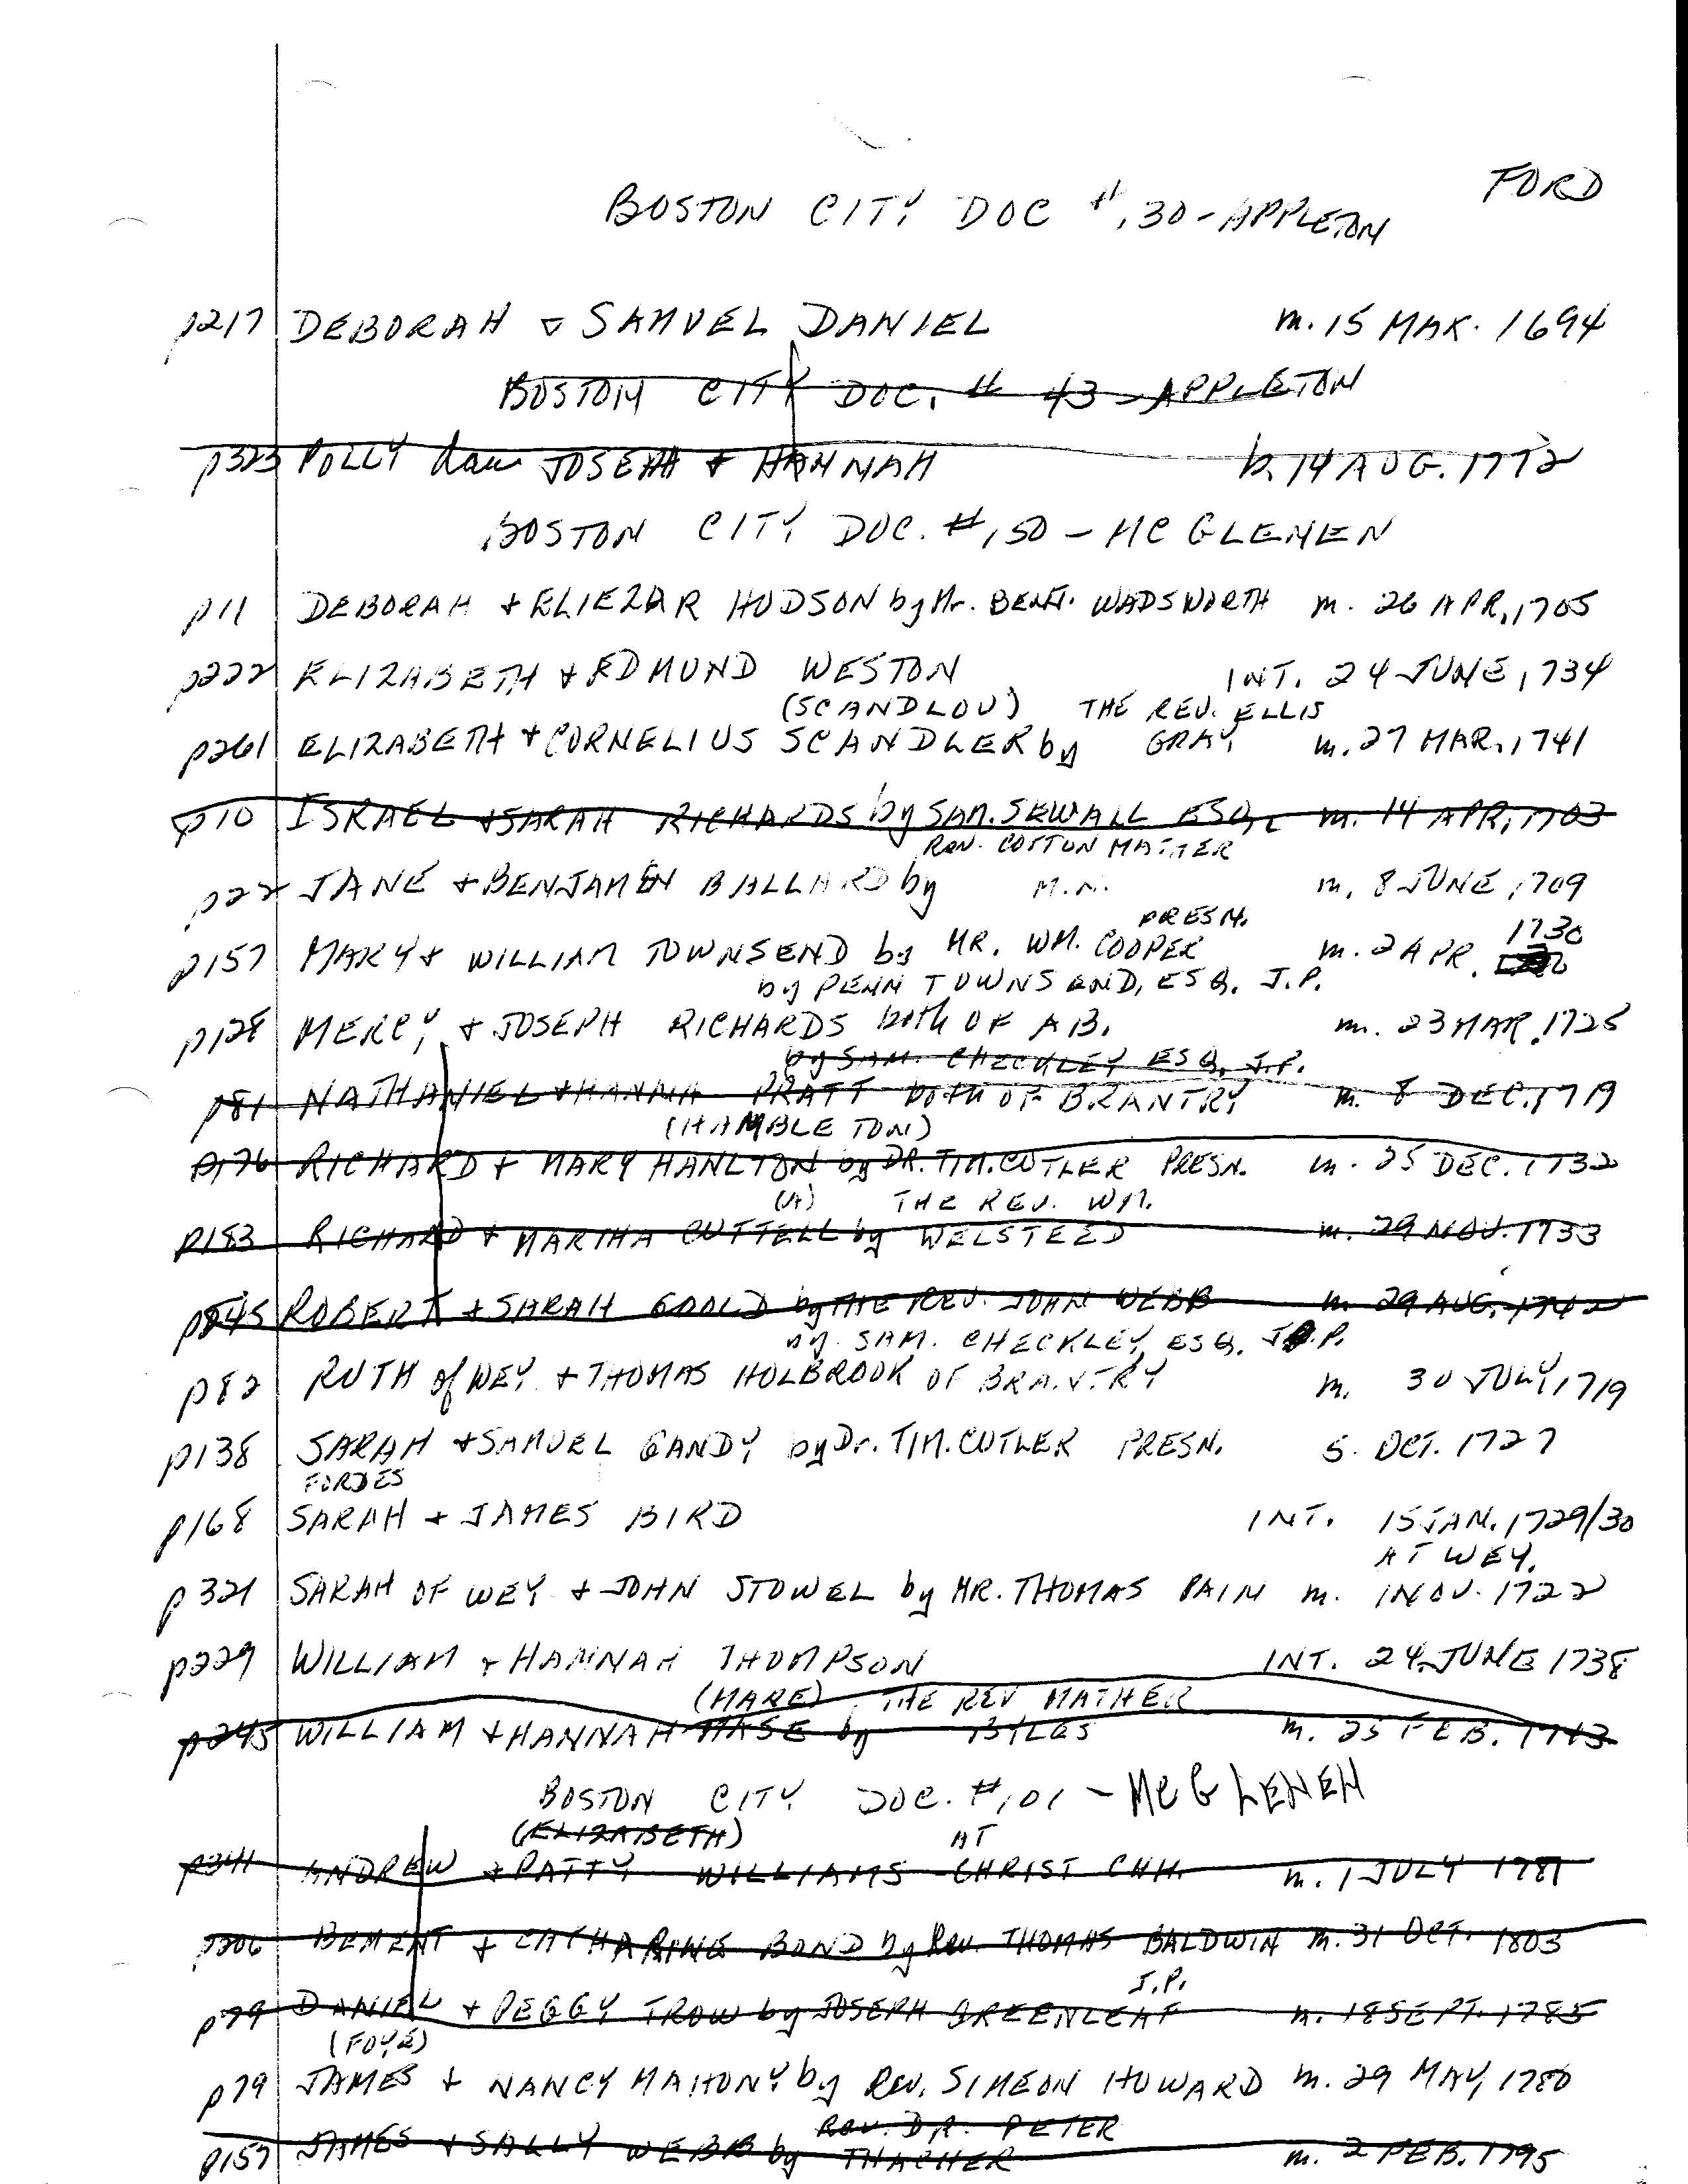 FORD
BOSTON CITY DOC #130-APPLETON
p217 DEBORAH & SAMUEL DANIEL m. 15 MAR. 1694
BOSTON CITY DOC. # 43-APPLETON
p323 POLLY dau JOSEPH & HANNAH b. 14 AUG. 1772
BOSTON CITY DOC. #150-MC GLENEN
p11 DEBORAH & ELIEZAR HUDSON by Mr. BENJ. WADSWORTH m. 26 APR. 1705
p222 ELIZABETH & EDMUND WESTON INT. 24 JUNE 1734
(SCANDLOU) THE REV. ELLIS
p261 ELIZABETH & CORNELIUS SCANDLER by GRAY m. 27 MAR. 1741
p10 ISRAEL & SARAH RICHARDS by SAM. SEWALL ESQ. m. 14 APR. 1703
REV. COTTON MATHER
p22 JANE & BENJAMEN BALLARD by M.M. m. 8 JUNE 1709
PRESN. 1730
p157 MARY & WILLIAM TOWNSEND by MR. WM. COOPER m. 2 APR.
by PENN TOWNSEND, ESQ. J.P.
p128 MERCY & JOSEPH RICHARDS both OF AB. m. 23 MAR. 1725
by SAM. CHECKLEY ESQ. J.P.
p81 NATHANIEL & HANNA PRATT both OF BRANTRY m. 8 DEC. 1719
(HAMBLETON)
p176 RICHARD & MARY HANLTON by DR. TIM. CUTLER PRESN. m. 25 DEC. 1732
(A) THE REV. WM.
p183 RICHARD & MARTHA CUTTELL by WELSTEED m. 29 NOV. 1733
p245 ROBERT & SARAH GOOLD by THE REV. JOHN WEBB m. 29 AUG. 1742
by SAM. CHECKLEY, ESQ. J.P.
p82 RUTH of WEY. & THOMAS HOLBROOK OF BRANTRY m. 30 JULY 1719
p138 SARAH & SAMUEL GANDY by Dr. TIM. CUTLER PRESN. 5 OCT. 1727
FORDES
p168 SARAH & JAMES BIRD INT. 15 JAN. 1729/30
AT WEY.
p321 SARAH OF WEY & JOHN STOWEL by MR. THOMAS PAIN m. 1 NOV. 1722
p229 WILLIAM & HANNAH THOMPSON INT. 24 JUNE 1738
(MARE) THE REV MATHER
p245 WILLIAM & HANNAH MASE by BYLES m. 25 FEB. 1743
BOSTON CITY DOC. #101-MCGLENEN
(ELIZABETH) AT
p341 ANDREW & PATTY WILLIAMS CHRIST CHH. m. 1 JULY 1781
p206 BEMENT & CATHARINE BOND by Rev. THOMAS BALDWIN m. 31 OCT. 1803
J.P.
p79 DANIEL & PEGGY TROW by JOSEPH GREENLEAF m. 18 SEPT. 1785
(FOYE)
p79 JAMES & NANCY MAHONY by REV. SIMEON HOWARD m. 29 MAY 1780
Rev. DR. PETER
p157 JAMES & SALLY WEBB by THACHER m. 2 FEB. 1795